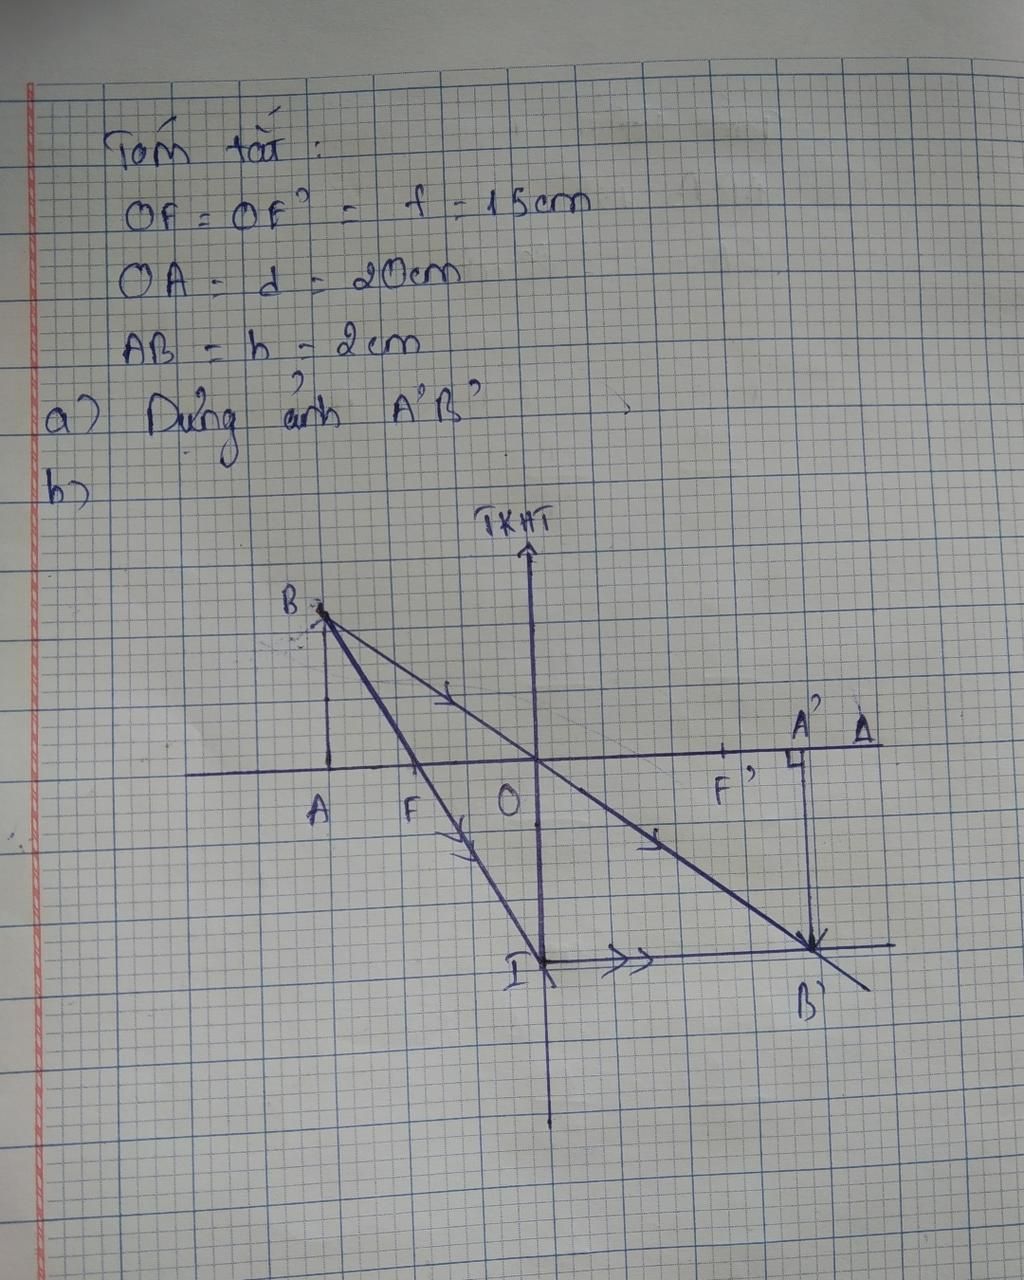 Tóm tắt :
OF = OF' = f = 15cm
OA = d = 20cm
AB = h = 2cm
a) Dựng ảnh A'B'
b)
TKHT
B
A' Δ
A F O F'
I
B'